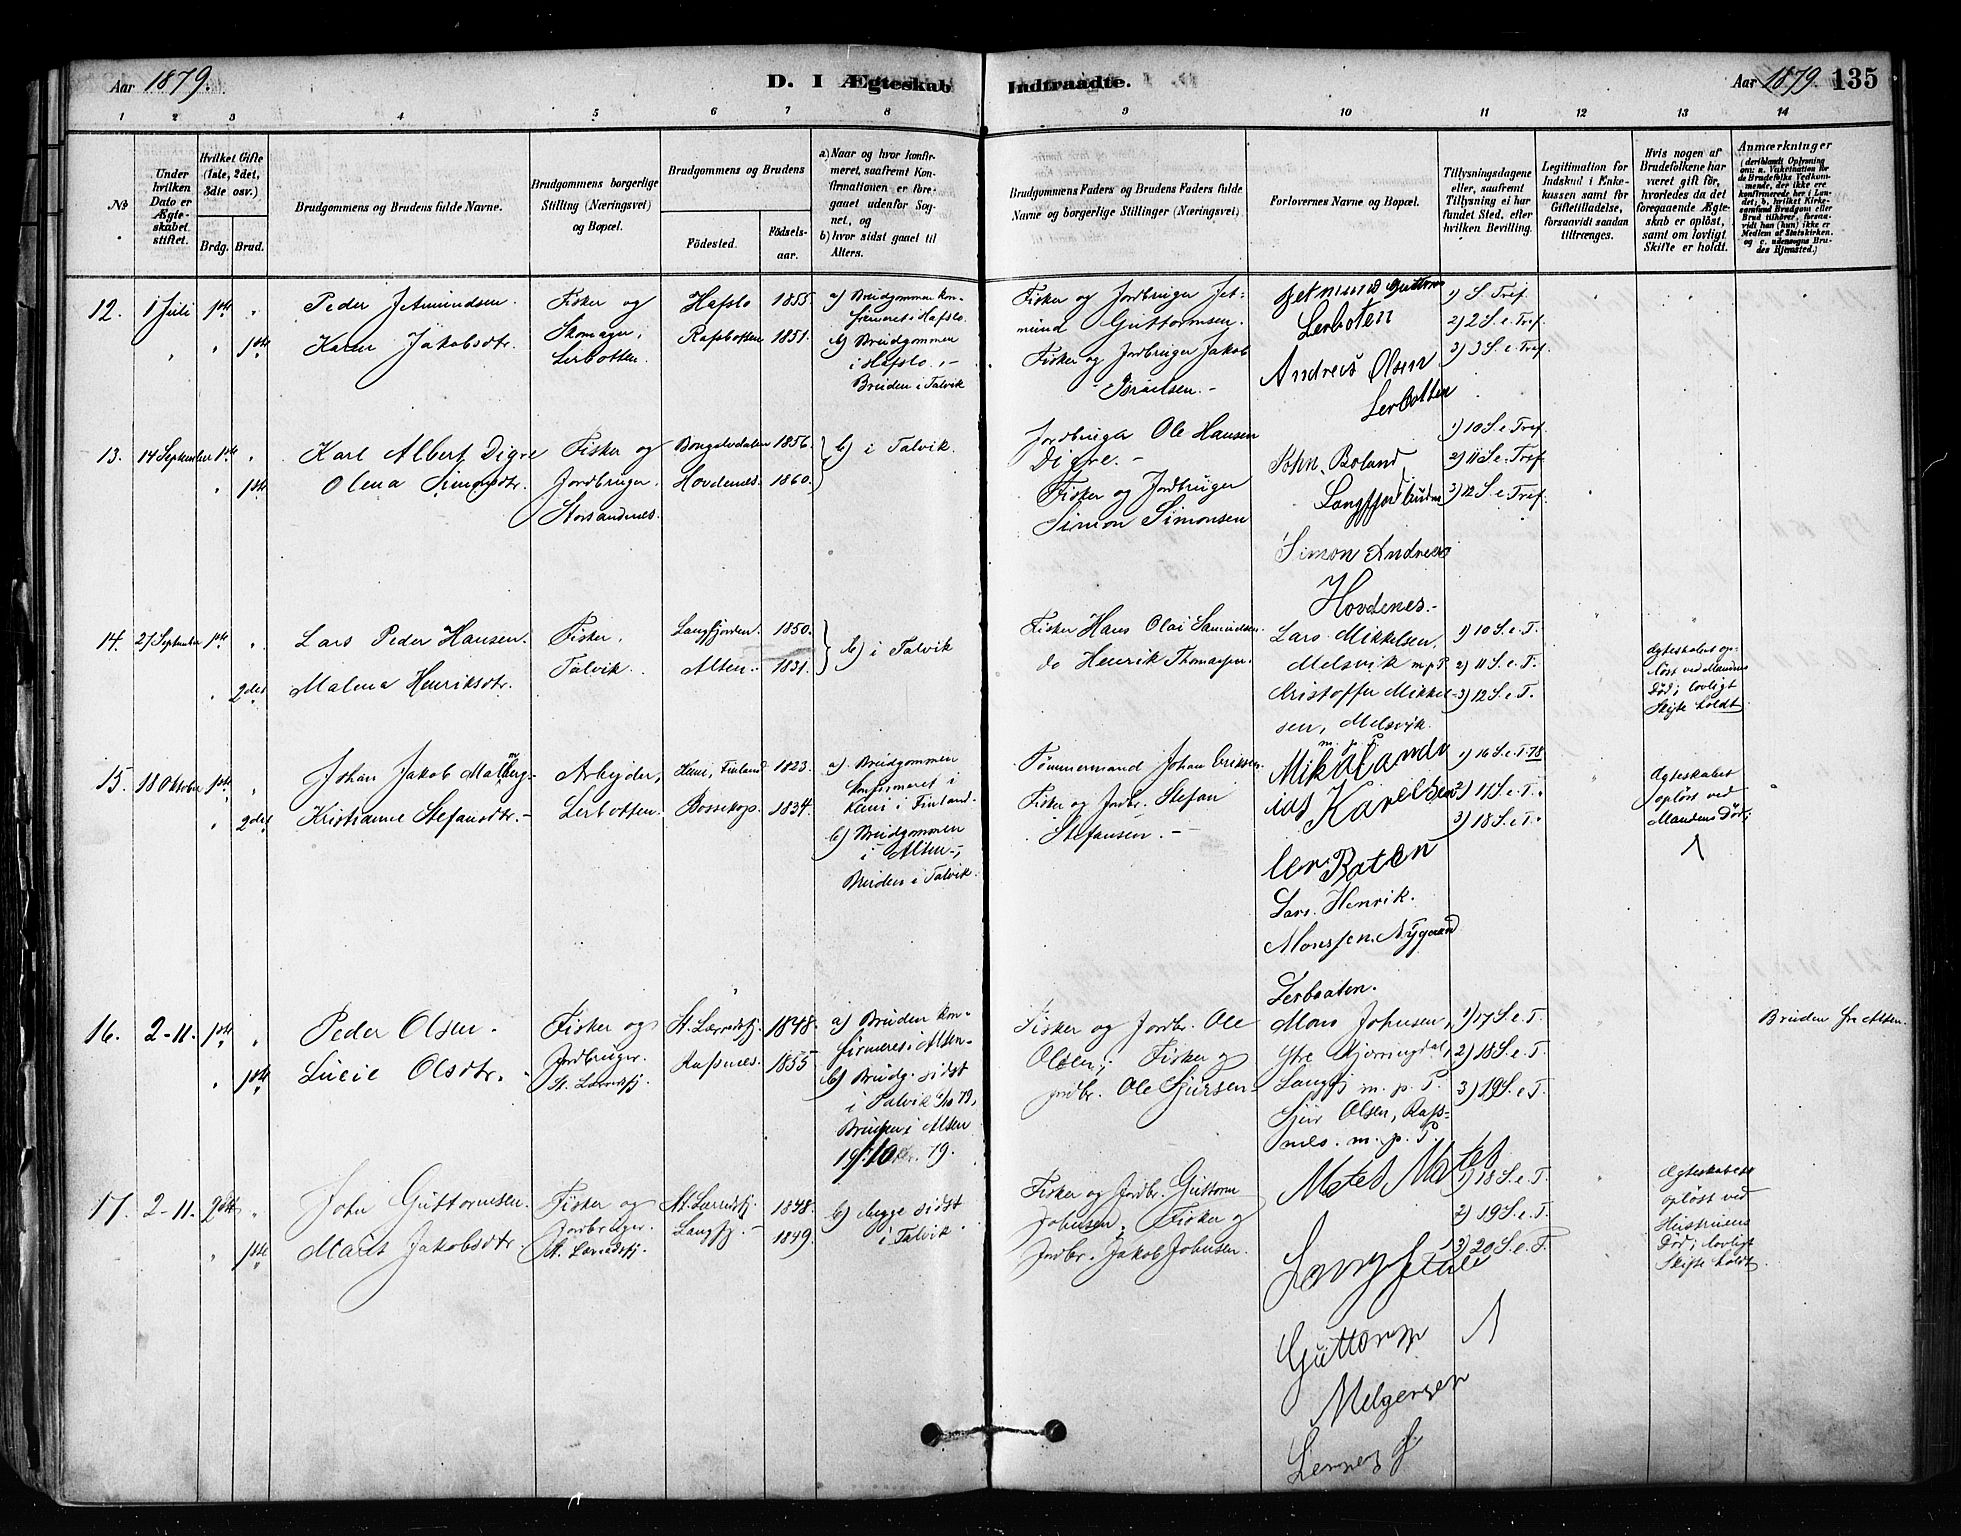 Aar 1879.
D. I Ægteskab Indtraadte.
Aar 1879. 135
1 2 3 4 5 6 7 8 9 10 11 12 13 14
No
Under
hvilken
Dato er
Ægte-
skabet
stiftet.
Hvilket Gifte
(1ste, 2det,
3die osv.)
Brdg. Brud.
Brudgommens og Brudens fulde Navne.
Brudgommens borgerlige
Stilling (Næringsvei)
og Bopæl.
Brudgommens og Brudens
Fødested.
Fødsels-
aar.
a) Naar og hvor konfir-
meret, saafremt Kon-
firmationen er fore-
gaaet udenfor Sog-
net, og
b) hvor sidst gaaet til
Alters.
Brudgommens Faders og Brudens Faders fulde
Navne og borgerlige Stillinger (Næringsvei)
Forlovernes Navne og Bopæl.
Tillysningsdagene
eller, saafremt
Tillysning ei har
fundet Sted, efter
hvilken Bevilling.
Legitimation for
Indskud i Enke-
kassen samt for
Giftetilladelse,
forsaavidt saadan
tiltrænges.
Hvis nogen af
Brudefolkene har
været gift før,
hvorledes da det
foregaaende Ægte-
skab er opløst
samt om lovligt
Skifte er holdt.
Anmærkninger
(deriblandt Oplysning
om: a. Vakcination for
de Brudefolks Vedkom-
mende, der ikke ere
konfirmerede her i Lan-
det; b. hvilket Kirke-
samfund Brudgom eller
Brud tilhører, forsaa-
vidt han (hun) ikke er
Medlem af Statskirken,
og c. udensogns Bru-
des Hjemsted.)
12. 1 Juli 1ste "
" " 1ste
Peder Jetmundsen.
Karen Jakobsdtr.
Fisker og
Skomager,
Lerbotten.
Hafslo 1855
Rafsbotten 1851.
a) Brudgommen kon-
firmeret i Hafslo.
b) Brudgommen
i Hafslo. -
Bruden i Talvik
Fisker og Jordbruger Jet-
mund Guttormsen.
Fisker og Jordbruger Jakob
Israelsen. -
Jetmund Guttorms
Lerboten
Andreas Olsen
Lerbotten
1) S. Tref.
2) 2 S. e. Tref.
3) 3 S. e. Tref.
13. 14 September 1ste "
" 1ste
Karl Albert Digre
Olena Simonsdtr.
Fisker og
Jordbruger.
Storsandnes.
1856.
Hovdenes. 1860.
b) i Talvik.
Jordbruger Ole Hansen
Digre. -
Fisker og Jordbruger
Simon Simonsen
John. Boland
Simon Andreas
Hovdenes. -
1) 10 S. e. Tref.
2) 11 S. e. Tref.
3) 12 S. e. Tref.
14. 21 September 1ste "
" 2det
Lars Peder Hansen.
Malena Henriksdtr.
Fisker.
Talvik.
Langfjorden. 1850.
Alten. 1831.
b) i Talvik
Fisker Hans Olai Samuelsen
do Henrik Thomassen
Lars Mikkelsen,
Melsvik m. p. P.
Kristoffer Mikkel-
sen, Melsvik.
m. p. P.
1) 10 S. e. T.
2) 11 S. e. T.
3) 12 S. e. T.
Ægteskabet op-
løst ved Mandens
Død; lovligt
Skifte holdt
15. 18 Oktober 1ste "
" 2det
Johan Jakob Malmberg -
Kristianne Stefansdtr. -
Arbejder,
Lerbotten.
Kemi, Finland 1823.
Bossekop. 1834.
a) Brudgommen
konfirmeret i
Kemi i Finland.
b) Brudgommen
i Alten -,
Bruden i Talvik.
Tømmermand Johan Eriksen
Fisker og Jordbr. Stefan
Stefansen. -
Mikal ands
ias Karelsen
ler Boten
Lars. Henrik.
Monssen. Nygaard
Lerbaaten.
1) 16 S. e. T. 78
2) 17 S. e. T.
3) 18 S. e. T.
Ægteskabet
opløst ved
Mandens Død;
16. 2-11. 1ste "
" 1ste
Peder Olsen.
Lucie Olsdtr. -
Fisker og
Jordbruger.
St. Lerresfj.
St. Lerresfj. 1848.
Rafsnes. 1855
a) Bruden kon-
firmeret i Alten
b) Brudg. sidst
i Talvik
Bruden i Alten
Fisker og Jordbr. Ole
Olsen; Fisker og
Jordbr. Ole Sjursen
Mons Johnsen,
Ytre Kjerringdal,
Langfj. m. p. P.
Sjur Olsen, Rafs-
nes. m. p. P.
1) 17 S. e. T.
2) 18 S. e. T.
3) 19 S. e. T.
Bruden fra Alten.
17. 2-11. 2det "
" 1ste
John Guttormsen.
Marit Jakobsdtr.
Fisker og
Jordbruger.
St. Lerresfj.
St. Lerresfj. 1848.
Langfj. - 1849.
b) begge sidst
i Talvik
Fisker og Jordbr. Guttorm
Johnsen; Fisker og
Jordbr. Jakob Johnsen.
Guttorm
1) 18 S. e. T.
2) 19 S. e. T.
3) 20 S. e. T.
Ægteskabet
opløst ved
Hustruens
Død; lovligt
Skifte holdt.